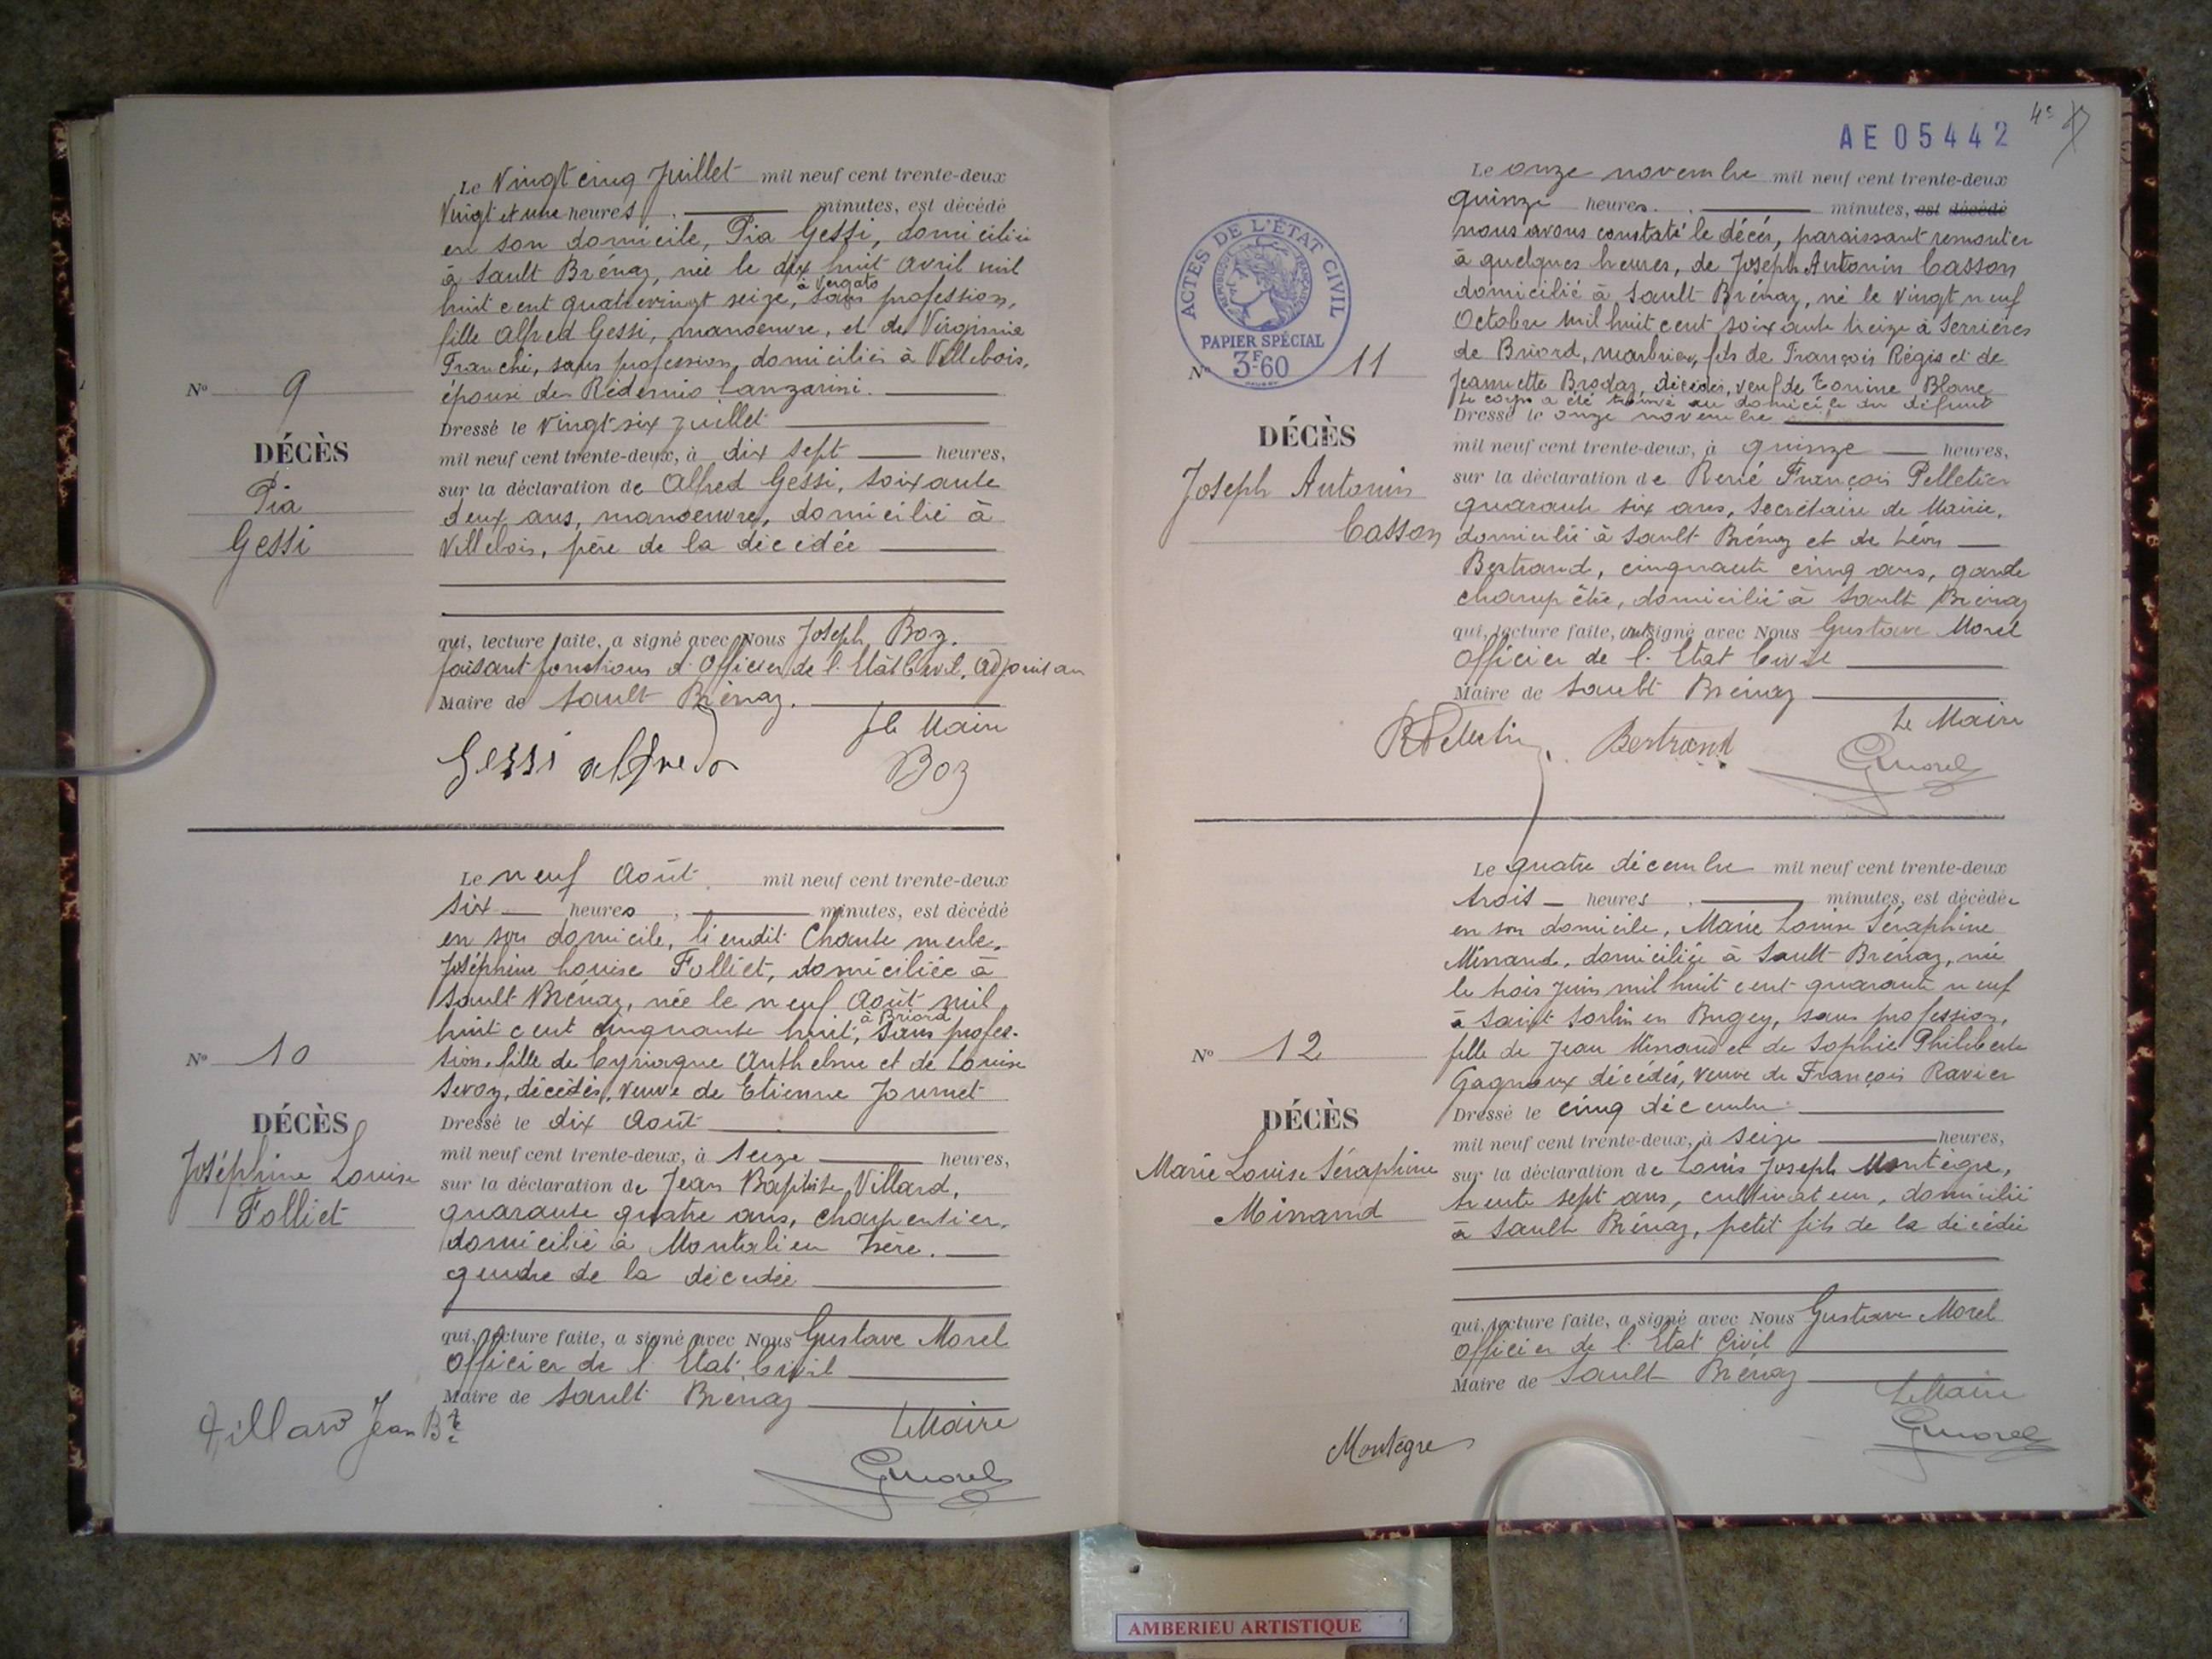 Le Vingt cinq Juillet mil neuf cent trente-deux
Vingt et une heures, minutes, est décédé
en son domicile, Pia Gessi, domiciliée
à Sault Brénaz, née le dix huit Avril mil
à Vergato
huit cent quatrevingt seize, sans profession,
fille Alfred Gessi, manoeuvre, et de Virginie
Franchi, sans profession, domiciliés à Villebois,
épouse de Lanzarini.
Nº 9
DÉCÈS
Pia
Gessi
Dressé le Vingt-six Juillet
mil neuf cent trente-deux, à dix sept heures,
sur la déclaration de Alfred Gessi, soixante
deux ans, manoeuvre, domicilié à
Villebois, père de la décédée
qui, lecture faite, a signé avec Nous Joseph Boz.
faisant fonctions d'Officier de l'Etat Civil, Adjoint au
Maire de Sault Brénaz.
Le Maire
Gessi Alfredo
Boz
Le neuf Août mil neuf cent trente-deux
six heures, minutes, est décédé
en son domicile, lieudit Chante merle,
Joséphine Louise Folliet, domiciliée à
Sault Brénaz, née le neuf Août mil
à Briord
huit cent cinquante huit, sans profes-
sion, fille de Cyriaque Anthelme et de Louise
Sevoz, décédés, veuve de Etienne Journet
Nº 10
DÉCÈS
Joséphine Louise
Folliet
Dressé le dix Août
mil neuf cent trente-deux, à seize heures,
sur la déclaration de Jean Baptiste Villard,
quarante quatre ans, charpentier,
domicilié à Montalieu Isère.
gendre de la décédée
qui, lecture faite, a signé avec Nous Gustave Morel
Officier de l'Etat Civil
Maire de Sault Brénaz
Villard Jean Bte
Le Maire
GMorel
AE05442
4e
Le onze novembre mil neuf cent trente-deux
quinze heures. minutes, est décédé
nous avons constaté le décès, paraissant remonter
à quelques heures, de Joseph Antonin Casson
domicilié à Sault Brénaz, né le Vingt neuf
Octobre mil huit cent soixante treize à Serrières
de Briord, marbrier, fils de François Régis et de
Jeannette Brodaz, décédés, veuf de Tonine Blanc
Le corps a été trouvé au domicile du défunt
ACTES DE L'ÉTAT CIVIL
RÉPUBLIQUE FRANÇAISE
PAPIER SPÉCIAL
3F60
Nº 11
DÉCÈS
Joseph Antonin
Casson
Dressé le onze novembre
mil neuf cent trente-deux, à quinze heures,
sur la déclaration de René François Pelletier
quarante six ans, Secrétaire de Mairie,
domicilié à Sault Brénaz et de Léon
Bertrand, cinquante cinq ans, garde
champêtre, domicilié à Sault Brénaz
qui, lecture faite, ont signé avec Nous Gustave Morel
Officier de l'Etat Civil
Maire de Sault Brénaz
Le Maire
RPelletier
Bertrand
GMorel
Le quatre décembre mil neuf cent trente-deux
trois heures. minutes, est décédée
en son domicile, Marie Louise Séraphine
Minand, domiciliée à Sault Brénaz, née
le trois juin mil huit cent quarante neuf
à Saint Sorlin en Bugey, sans profession,
fille de Jean Minand et de Sophie Philiberte
Gagneux décédés, veuve de François Ravier
Nº 12
DÉCÈS
Marie Louise Séraphine
Minand
Dressé le cinq décembre
mil neuf cent trente-deux, à seize heures,
sur la déclaration de Louis Joseph Montègre,
trente sept ans, cultivateur, domicilié
à Sault Brénaz, petit fils de la décédée
qui, lecture faite, a signé avec Nous Gustave Morel
Officier de l'Etat Civil
Maire de Sault Brénaz
Le Maire
Montègre
GMorel
AMBERIEU ARTISTIQUE